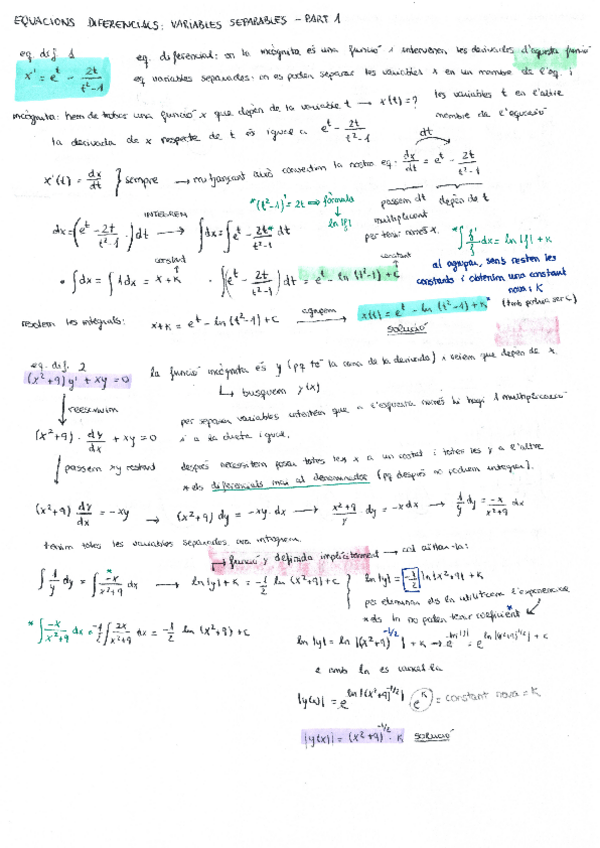 EQUACIONS DIFERENCIALS: VARIABLES SEPARABLES - PART 1
eq. dif 1
x' = e^t - 2t/(t²-1)
eq. diferencial: on la incògnita és una funció i intervenen les derivades d'aquesta funció
eq variables separades: on es poden separar les variables x en un membre de l'eq. i les variables t en l'altre membre de l'equació
incògnita: hem de trobar una funció x que depèn de la variable t → x(t) = ?
la derivada de x respecte de t és igual a e^t - 2t/(t²-1)
x'(t) = dx/dt } sempre → mitjançant això convertim la nostra eq. dx/dt = e^t - 2t/(t²-1)
dt
passem dt multiplicant per tenir només x.
depèn de t
*(t²-1)' = 2t ⟹ fórmula
↓
ln|f|
dx = (e^t - 2t/(t²-1)) · dt
INTEGREM
→ ∫dx = ∫e^t - 2t*/(t²-1) dt
*∫ f'/f dx = ln|f| + K
constant
• ∫dx = ∫1dx = x + K
• ∫(e^t - 2t/(t²-1)) dt = e^t - ln(t²-1) + C
constant
al agrupar, sens resten les constants i obtenim una constant nova: K
resolem les integrals: x + K = e^t - ln(t²-1) + C
agrupem
→ x(t) = e^t - ln(t²-1) + K*
(tmb podria ser C)
SOLUCIÓ
eq. dif. 2
(x²+9)y' + xy = 0
la funció incògnita és y (pq té la coma de la derivada) i veiem que depèn de x.
↳ busquem y(x)
↓ reescrivim
(x²+9) · dy/dx + xy = 0
per separar variables intentem que a l'esquerra només hi hagi 1 multiplicació i a la dreta igual.
↓ passem xy restant
després necessitem posar totes les x a un costat i totes les y a l'altre
*els diferencials mai al denominador (pq després no podrem integrar).
(x²+9) dy/dx = -xy → (x²+9) dy = -xy · dx → (x²+9)/y dy = -x dx → 1/y dy = -x/(x²+9) dx
tenim totes les variables separades ara integrem.
→ funció y definida implícitament → cal aïllar-la:
∫ 1/y dy = ∫ -x*/(x²+9) dx → ln|y| + K = -1/2 ln(x²+9) + C }
ln|y| = -1/2 ln|x²+9| + K
per eliminar els ln utilitzem l'exponencial
*els ln no poden tenir coeficient*
*∫ -x/(x²+9) dx = -1/2 ∫ 2x/(x²+9) dx = -1/2 ln(x²+9) + C
ln|y| = ln|(x²+9)^(-1/2)| + K → e^(ln|y|) = e^(ln|(x²+9)^(-1/2)| + C)
e amb ln es cancel·la
|y(x)| = e^(ln|(x²+9)^(-1/2)|) · e^K = constant nova = K
|y(x)| = (x²+9)^(-1/2) · K SOLUCIÓ